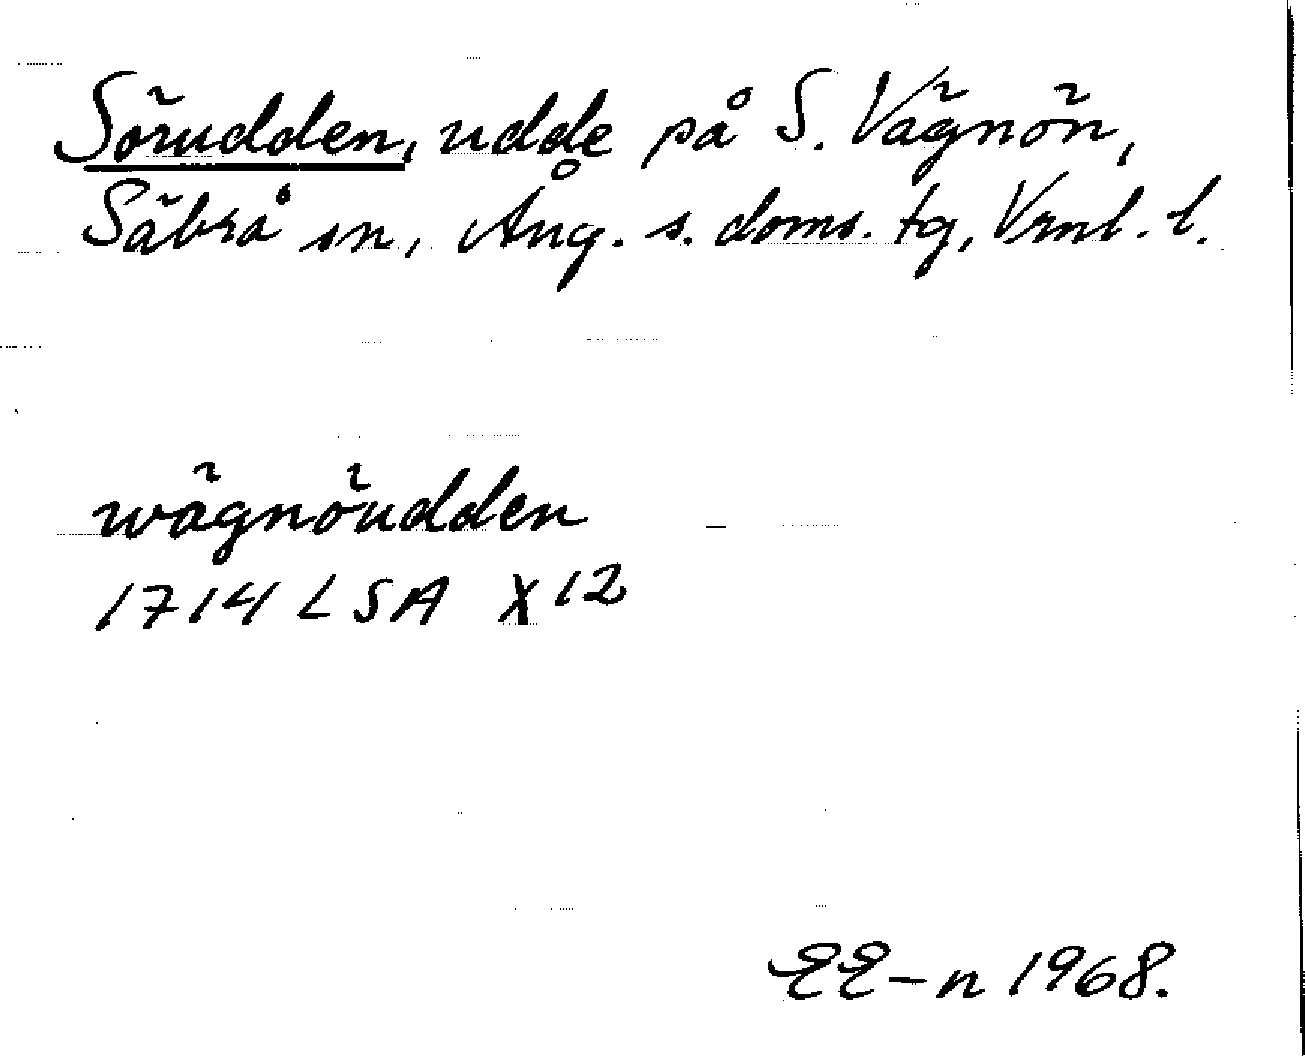 Sörudden, udde på S. Vägnön,
Säbrå sn, Ång. s. doms. tg, Vrnl. l.
wägnöudden
1714 LSA X 12
EE-n 1968.